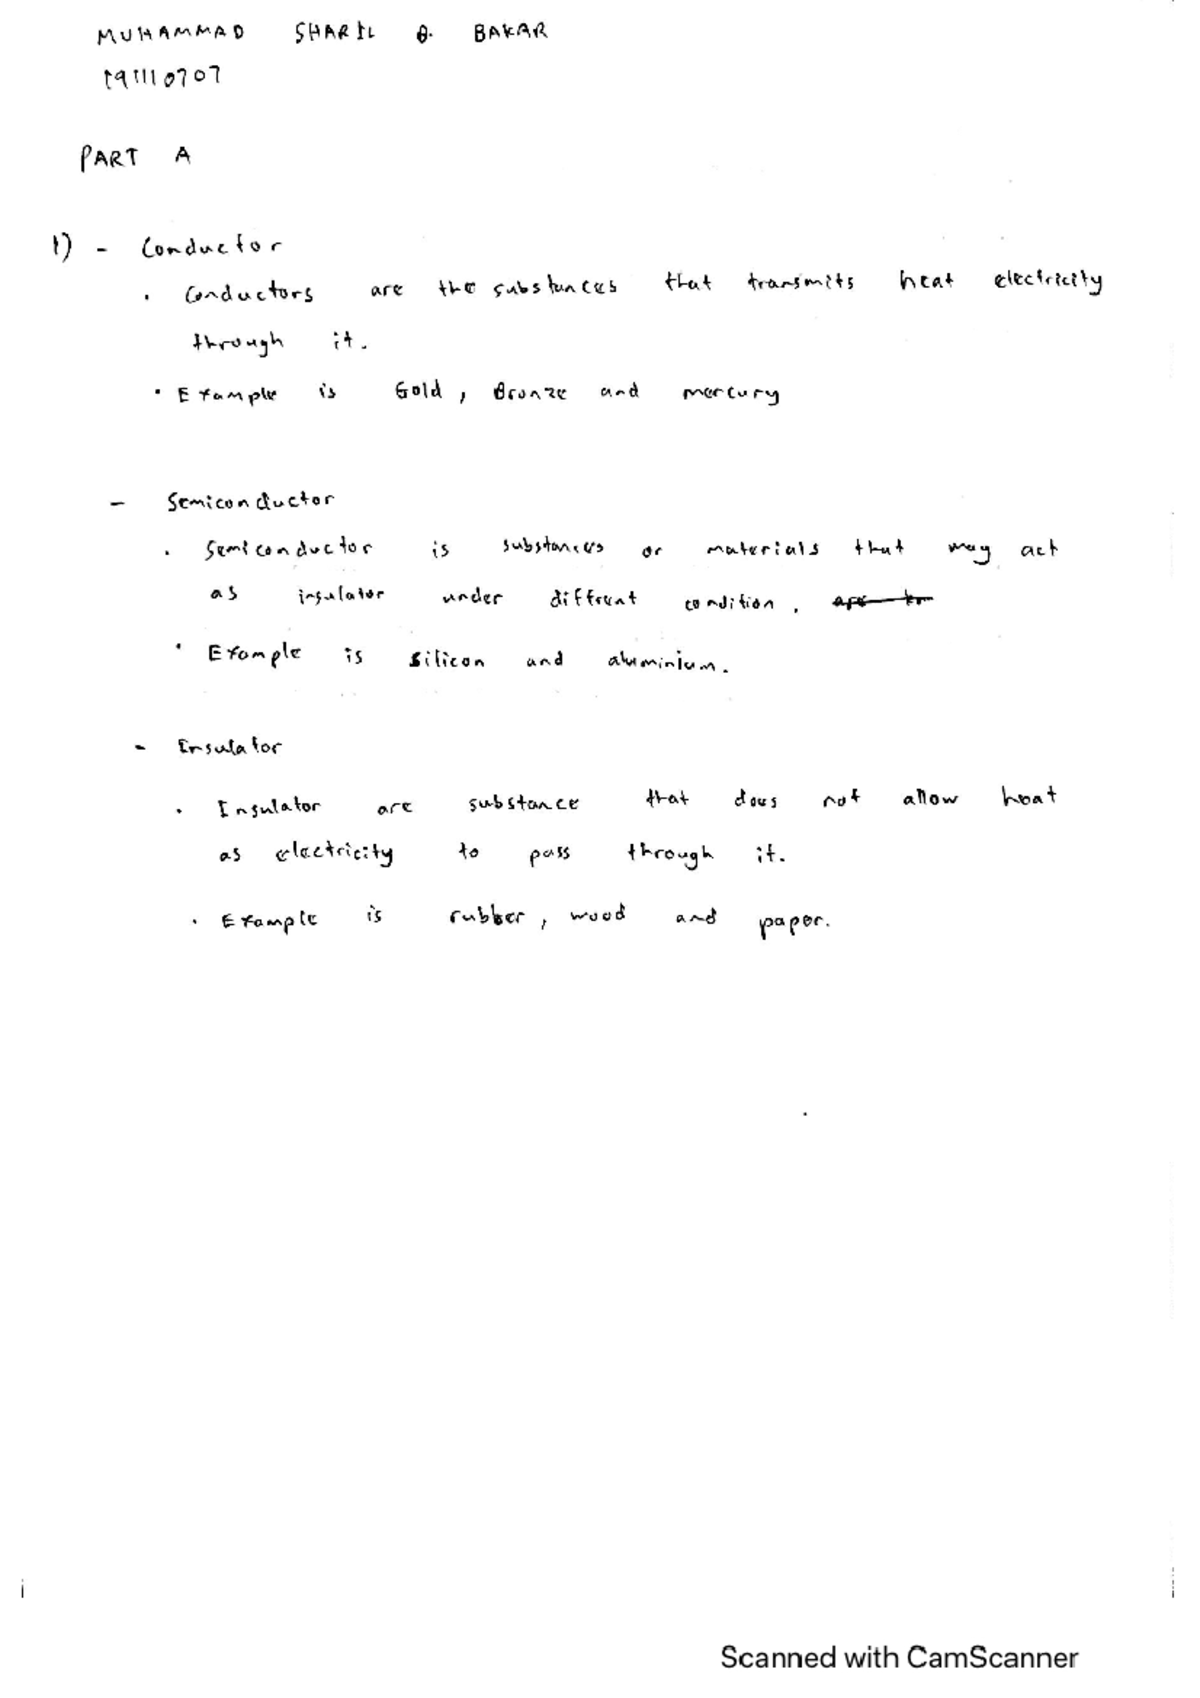 MUHAMMAD SHARIL B. BAKAR
191110707
PART A
1) - Conductor
• Conductors are the substances that transmits heat electricity
through it.
• Example is Gold, Bronze and mercury
- Semiconductor
• Semiconductor is substances or materials that may act
as insulator under different condition.
• Example is silicon and aluminium.
- Insulator
• Insulator are substance that does not allow heat
as electricity to pass through it.
• Example is rubber, wood and paper.
Scanned with CamScanner